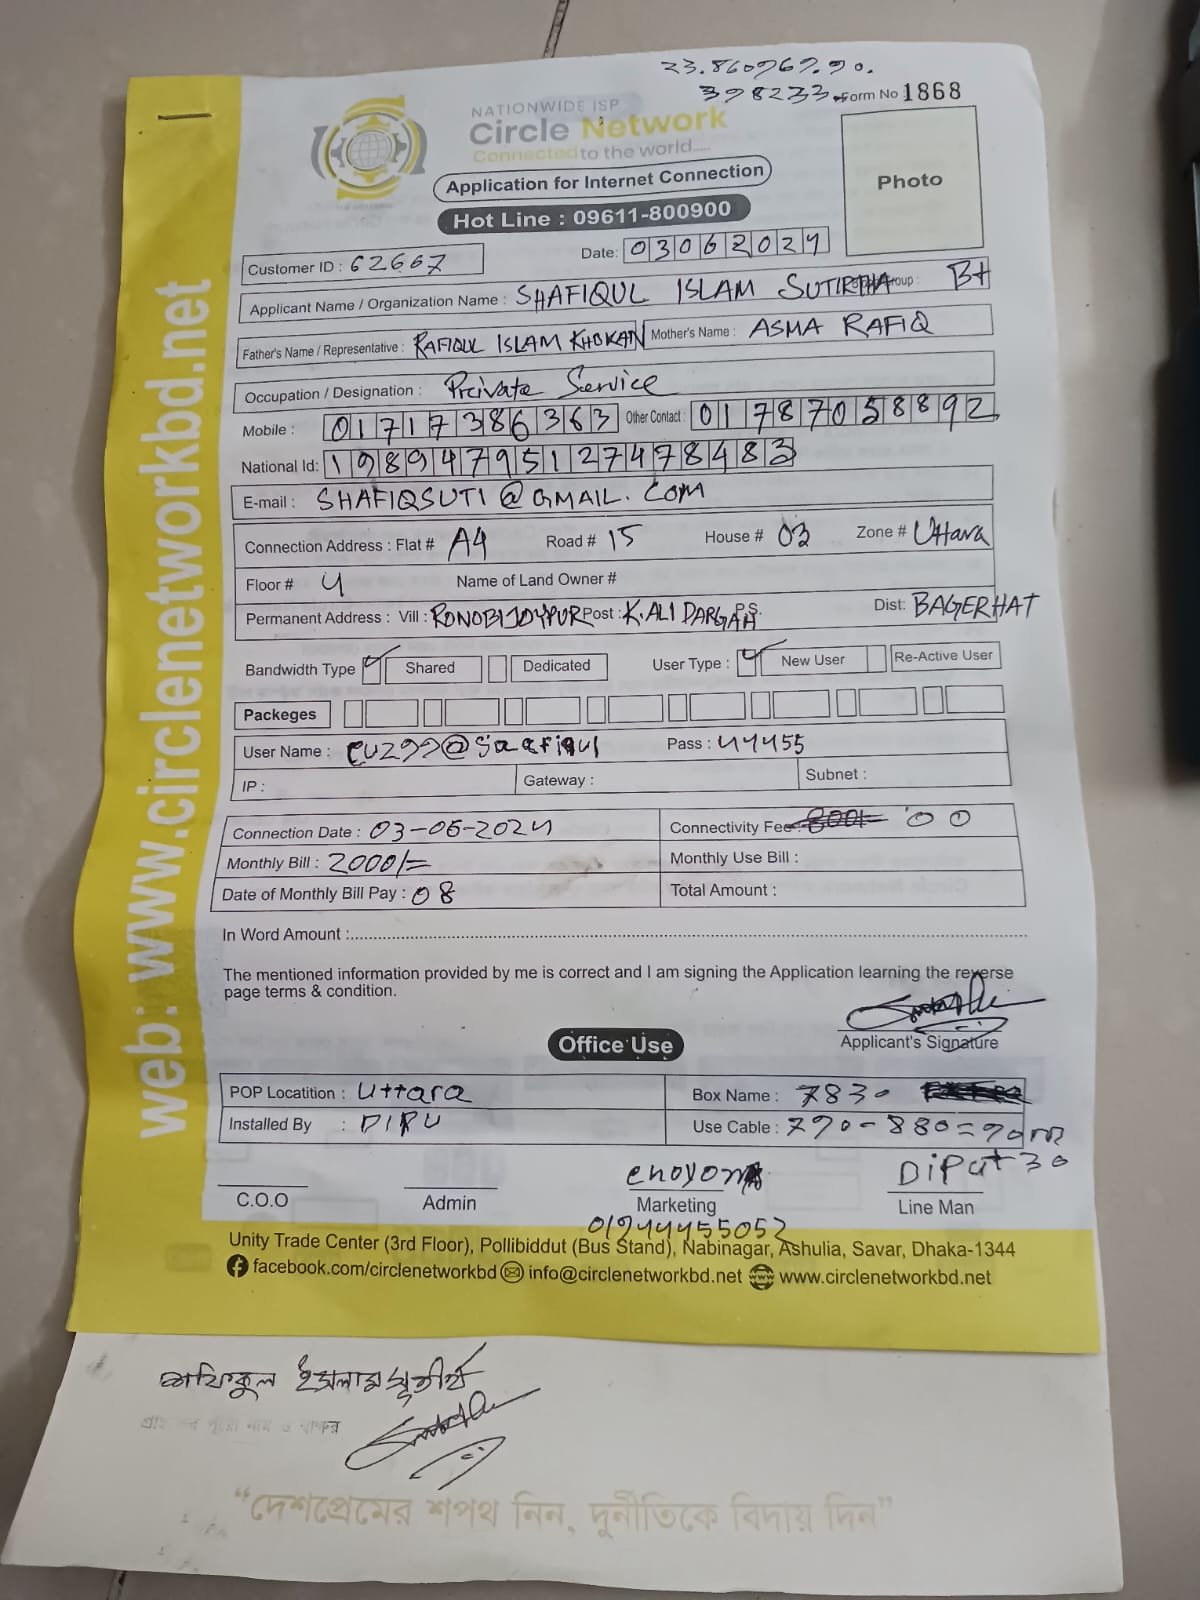 23.860969.90.
398233.
Form No 1868
NATIONWIDE ISP
Circle Network
Connected to the world....
Application for Internet Connection
Photo
Hot Line : 09611-800900
Customer ID : 62667
Date: 03062024
Applicant Name / Organization Name : SHAFIQUL ISLAM SUTIRTHA Group : B+
Father's Name / Representative : RAFIQUL ISLAM KHOKAN Mother's Name : ASMA RAFIQ
Occupation / Designation : Private Service
Mobile : 01717386363 Other Contact : 01787058892
National Id: 19894795127478483
E-mail : SHAFIQSUTI@GMAIL.COM
Connection Address : Flat # A4 Road # 15 House # 03 Zone # Uttara
Floor # 4 Name of Land Owner #
Permanent Address : Vill : RONOBIJOYPUR Post : K.ALI DARGAH P.S. Dist: BAGERHAT
Bandwidth Type Shared Dedicated User Type : New User Re-Active User
Packeges
User Name : Pass : 44455
IP : Gateway : Subnet :
Connection Date : 03-06-2024 Connectivity Fee : 800/= 00
Monthly Bill : 2000/= Monthly Use Bill :
Date of Monthly Bill Pay : 08 Total Amount :
In Word Amount :
The mentioned information provided by me is correct and I am signing the Application learning the reverse
page terms & condition.
Applicant's Signature
Office Use
POP Locatition : Uttara Box Name : 7830
Installed By : DIPU Use Cable : 790-880=90m
enoyom Dipu
C.O.O Admin Marketing Line Man
01944455052
Unity Trade Center (3rd Floor), Pollibiddut (Bus Stand), Nabinagar, Ashulia, Savar, Dhaka-1344
facebook.com/circlenetworkbd info@circlenetworkbd.net www.circlenetworkbd.net
web: www.circlenetworkbd.net
শফিকুল ইসলাম সুতীর্থ
গ্রাহকের পুরো নাম ও স্বাক্ষর
“দেশপ্রেমের শপথ নিন, দুর্নীতিকে বিদায় দিন”